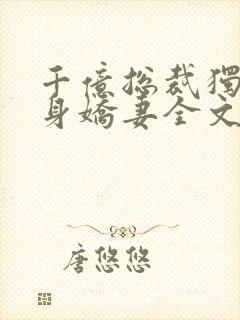 千億總裁獨
身嬌妻全文
唐悠悠